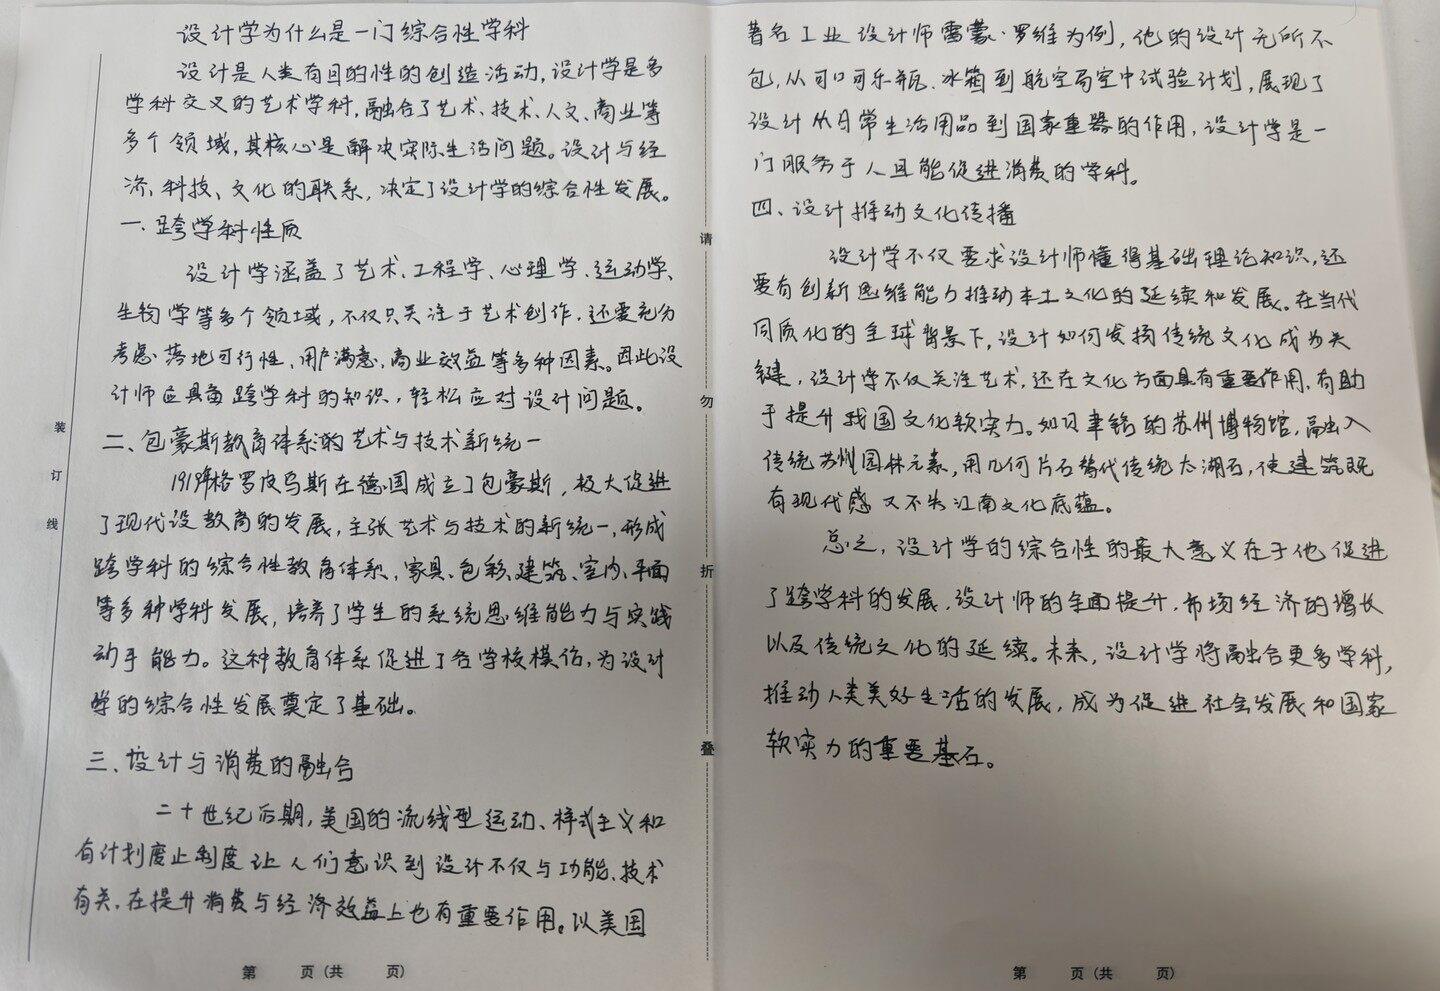 设计学为什么是一门综合性学科
设计是人类有目的性的创造活动,设计学是多
学科交叉的艺术学科,融合了艺术、技术、人文、商业等
多个领域,其核心是解决实际生活问题。设计与经
济、科技、文化的联系,决定了设计学的综合性发展。
一、跨学科性质
设计学涵盖了艺术、工程学、心理学、运动学、
生物学等多个领域,不仅只关注于艺术创作,还要充分
考虑落地可行性、用户满意、商业效益等多种因素。因此设
计师应具备跨学科的知识,轻松应对设计问题。
二、包豪斯教育体系的艺术与技术新统一
1919年格罗皮乌斯在德国成立了包豪斯,极大促进
了现代设教育的发展,主张艺术与技术的新统一,形成
跨学科的综合性教育体系,家具、色彩、建筑、室内、平面
等多种学科发展,培养了学生的系统思维能力与实践
动手能力。这种教育体系促进了各学校模仿,为设计
学的综合性发展奠定了基础。
三、设计与消费的融合
二十世纪后期,美国的流线型运动、样式主义和
有计划废止制度让人们意识到设计不仅与功能、技术
有关,在提升消费与经济效益上也有重要作用。以美国
第 页(共 页)
装
订
线
请
勿
折
叠
著名工业设计师雷蒙·罗维为例,他的设计无所不
包,从可口可乐瓶、冰箱到航空局空中试验计划,展现了
设计从日常生活用品到国家重器的作用,设计学是一
门服务于人且能促进消费的学科。
四、设计推动文化传播
设计学不仅要求设计师懂得基础理论知识,还
要有创新思维能力推动本土文化的延续和发展。在当代
同质化的全球背景下,设计如何发扬传统文化成为关
键,设计学不仅关注艺术,还在文化方面具有重要作用,有助
于提升我国文化软实力。如贝聿铭的苏州博物馆,融入
传统苏州园林元素,用几何片石替代传统太湖石,使建筑既
有现代感又不失江南文化底蕴。
总之,设计学的综合性的最大意义在于他促进
了跨学科的发展,设计师的全面提升,市场经济的增长
以及传统文化的延续。未来,设计学将融合更多学科,
推动人类美好生活的发展,成为促进社会发展和国家
软实力的重要基石。
第 页(共 页)